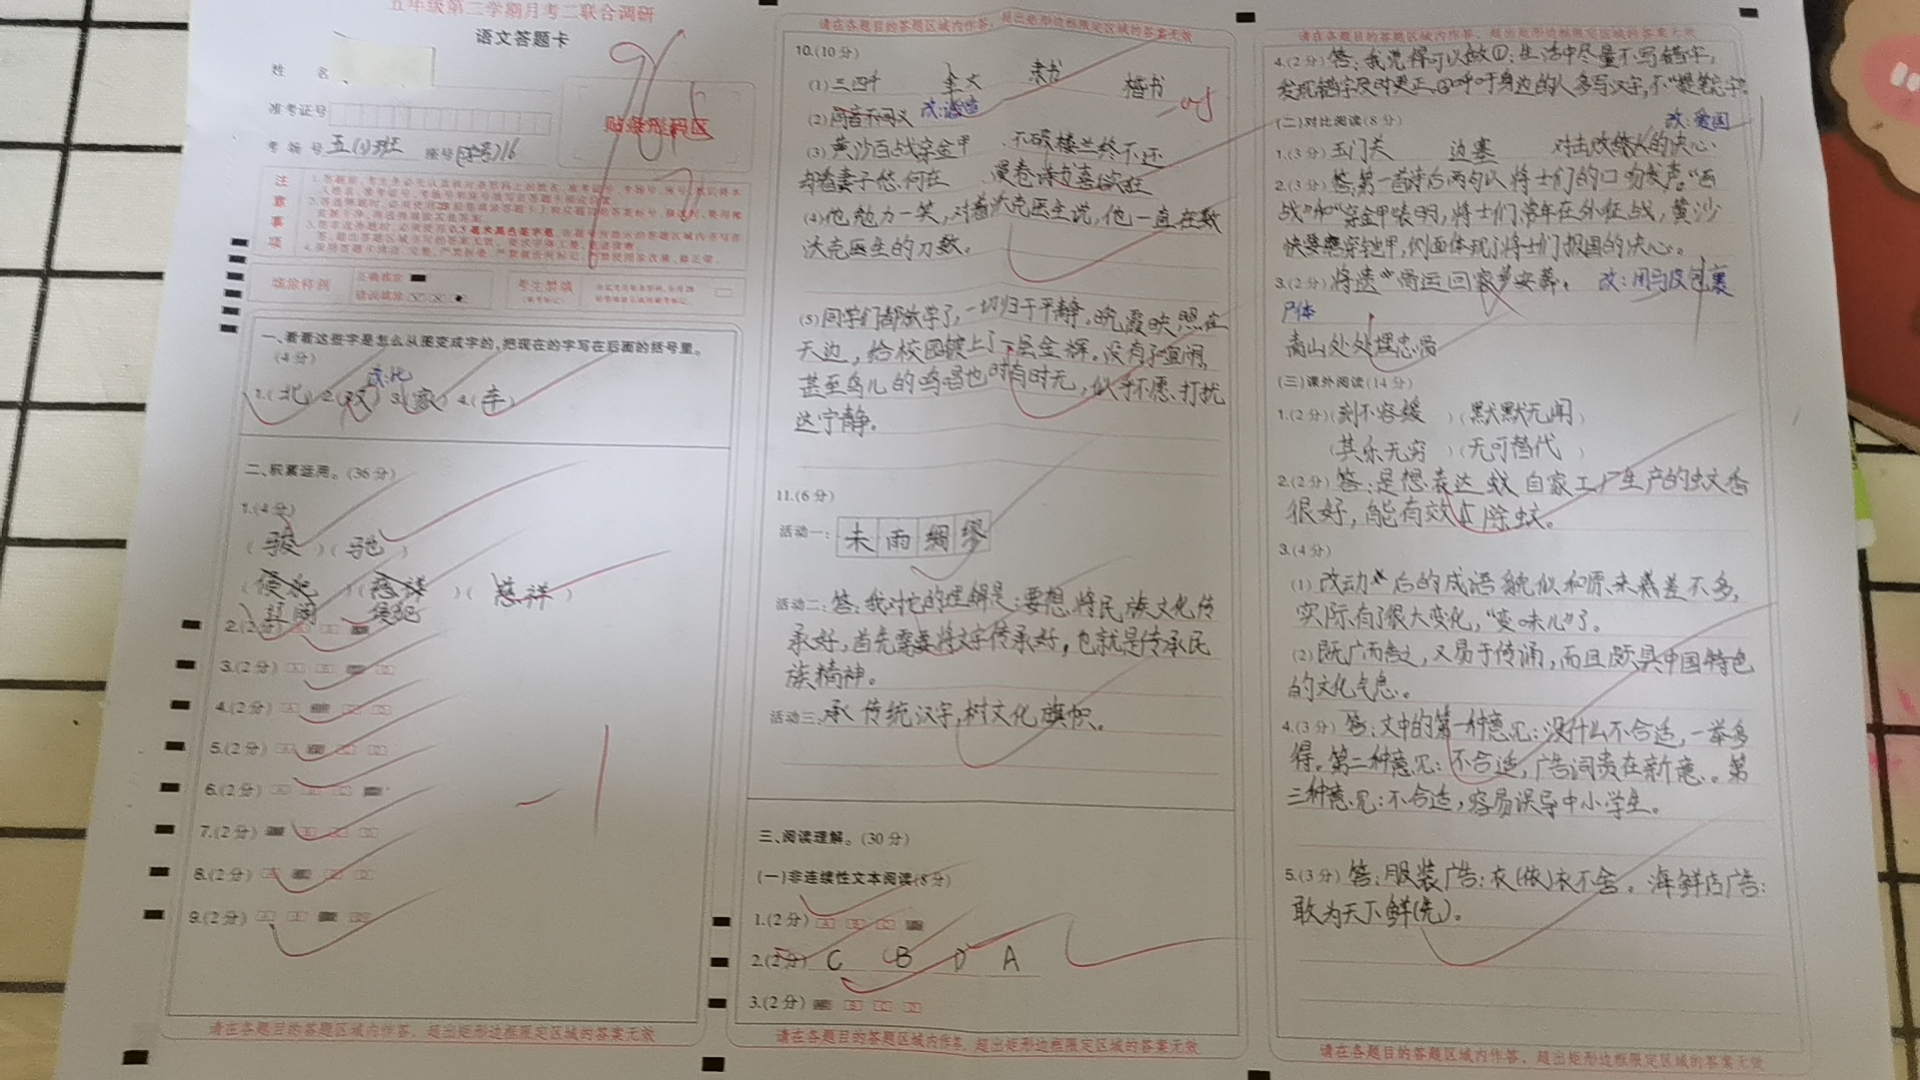 五年级第二学期月考二联合调研
语文答题卡
姓 名
准考证号
贴条形码区
考场号 五(1)班 座号(学号)16
注意事项
填涂样例
正确填涂
错误填涂
考生禁填
一、看看这些字是怎么从图变成字的,把现在的字写在后面的括号里。
(4分)
改:比
1.(北) 2.(双) 3.(寇) 4.(车)
二、积累运用。(36分)
1.(4分)
(骏)(驰)
(侵犯)(慈祥)(慈祥)
侵犯
2.(2分)
3.(2分)
4.(2分)
5.(2分)
6.(2分)
7.(2分)
8.(2分)
9.(2分)
-1
请在各题目的答题区域内作答,超出矩形边框限定区域的答案无效
请在各题目的答题区域内作答,超出矩形边框限定区域的答案无效
10.(10分)
(1)三四千 金文 隶书 楷书
(2)同音不同义 改:谐音
(3)黄沙百战穿金甲 不破楼兰终不还
却看妻子愁何在 漫卷诗书喜欲狂
(4)他勉力一笑,对着沃克医生说,他一直在数
沃克医生的刀数。
(5)同学们都放学了,一切归于平静,晚霞映照在
天边,给校园镀上了一层金辉。没有了喧闹,
甚至鸟儿的鸣唱也时有时无,似乎不愿打扰
这宁静。
11.(6分)
活动一: 未雨绸缪
活动二:答:我对它的理解是:要想将民族文化传
承好,首先需要将文字传承好,也就是传承民
族精神。
活动三:承传统汉字,树文化旗帜。
三、阅读理解。(30分)
(一)非连续性文本阅读(8分)
1.(2分)
2.(2分) C B D A
3.(2分)
请在各题目的答题区域内作答,超出矩形边框限定区域的答案无效
请在各题目的答题区域内作答,超出矩形边框限定区域的答案无效
4.(2分)答:我觉得可以做①:生活中尽量不写错字,
发现错字及时更正。②呼吁身边的人多写汉字,不“提笔忘字”。
(二)对比阅读(8分) 改:爱国
1.(3分)玉门关 边塞 对击败敌人的决心.
2.(3分)答:第一首诗后两句以将士们的口吻发声。“百
战”和“穿金甲”表明,将士们常年在外征战,黄沙
快要磨穿铠甲,侧面体现了将士们报国的决心。
3.(2分)将遗骨运回家乡安葬。 改:用马皮包裹
尸体
青山处处埋忠骨
(三)课外阅读(14分)
1.(2分)(刻不容缓)(默默无闻)
(其乐无穷)(无可替代)
2.(2分)答:是想表达 蚊 自家工厂生产的蚊香
很好,能有效止除蚊。
3.(4分)
(1)改动后的成语貌似和原来差不多,
实际有了很大变化,“变味儿”了。
(2)既广而告之,又易于传诵,而且颇具中国特色
的文化气息。
4.(3分)答:文中的第一种意见:没什么不合适,一举多
得。第二种意见:不合适,广告词贵在新意。第
三种意见:不合适,容易误导中小学生。
5.(3分)答:服装广告:衣(依)衣不舍。海鲜店广告:
敢为天下鲜(先)。
请在各题目的答题区域内作答,超出矩形边框限定区域的答案无效